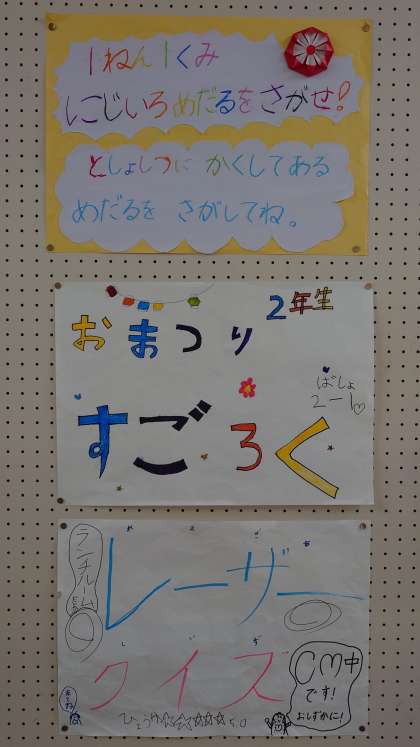 1ねん1くみ
にじいろめだるをさがせ!
としょしつに かくしてある
めだるを さがしてね。
2年生
おまつり
ばしょ
2-1
すごろく
ランチルーム
レーザー
クイズ
CM中
です!
おしずかに!
ひょうか☆☆☆☆☆5.0